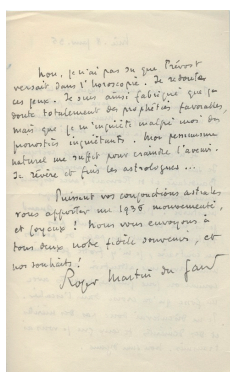 Non, je n'ai pas su que Prévost
versait dans l'horoscopie. Je redoute
ces jeux. Je suis ainsi fabriqué que je
doute totalement des prophéties favorables
mais que je m'inquiète malgré moi des
pronostics inquiétants. Mon pessimisme
naturel me suffit pour craindre l'avenir.
Je révère et fuis les astrologues...
Puissent vos conjonctions astrales
vous apporter un 1936 mouvementé,
et joyeux ! Nous vous envoyons à
tous deux notre fidèle souvenir, et
nos souhaits !
Roger Martin du Gard